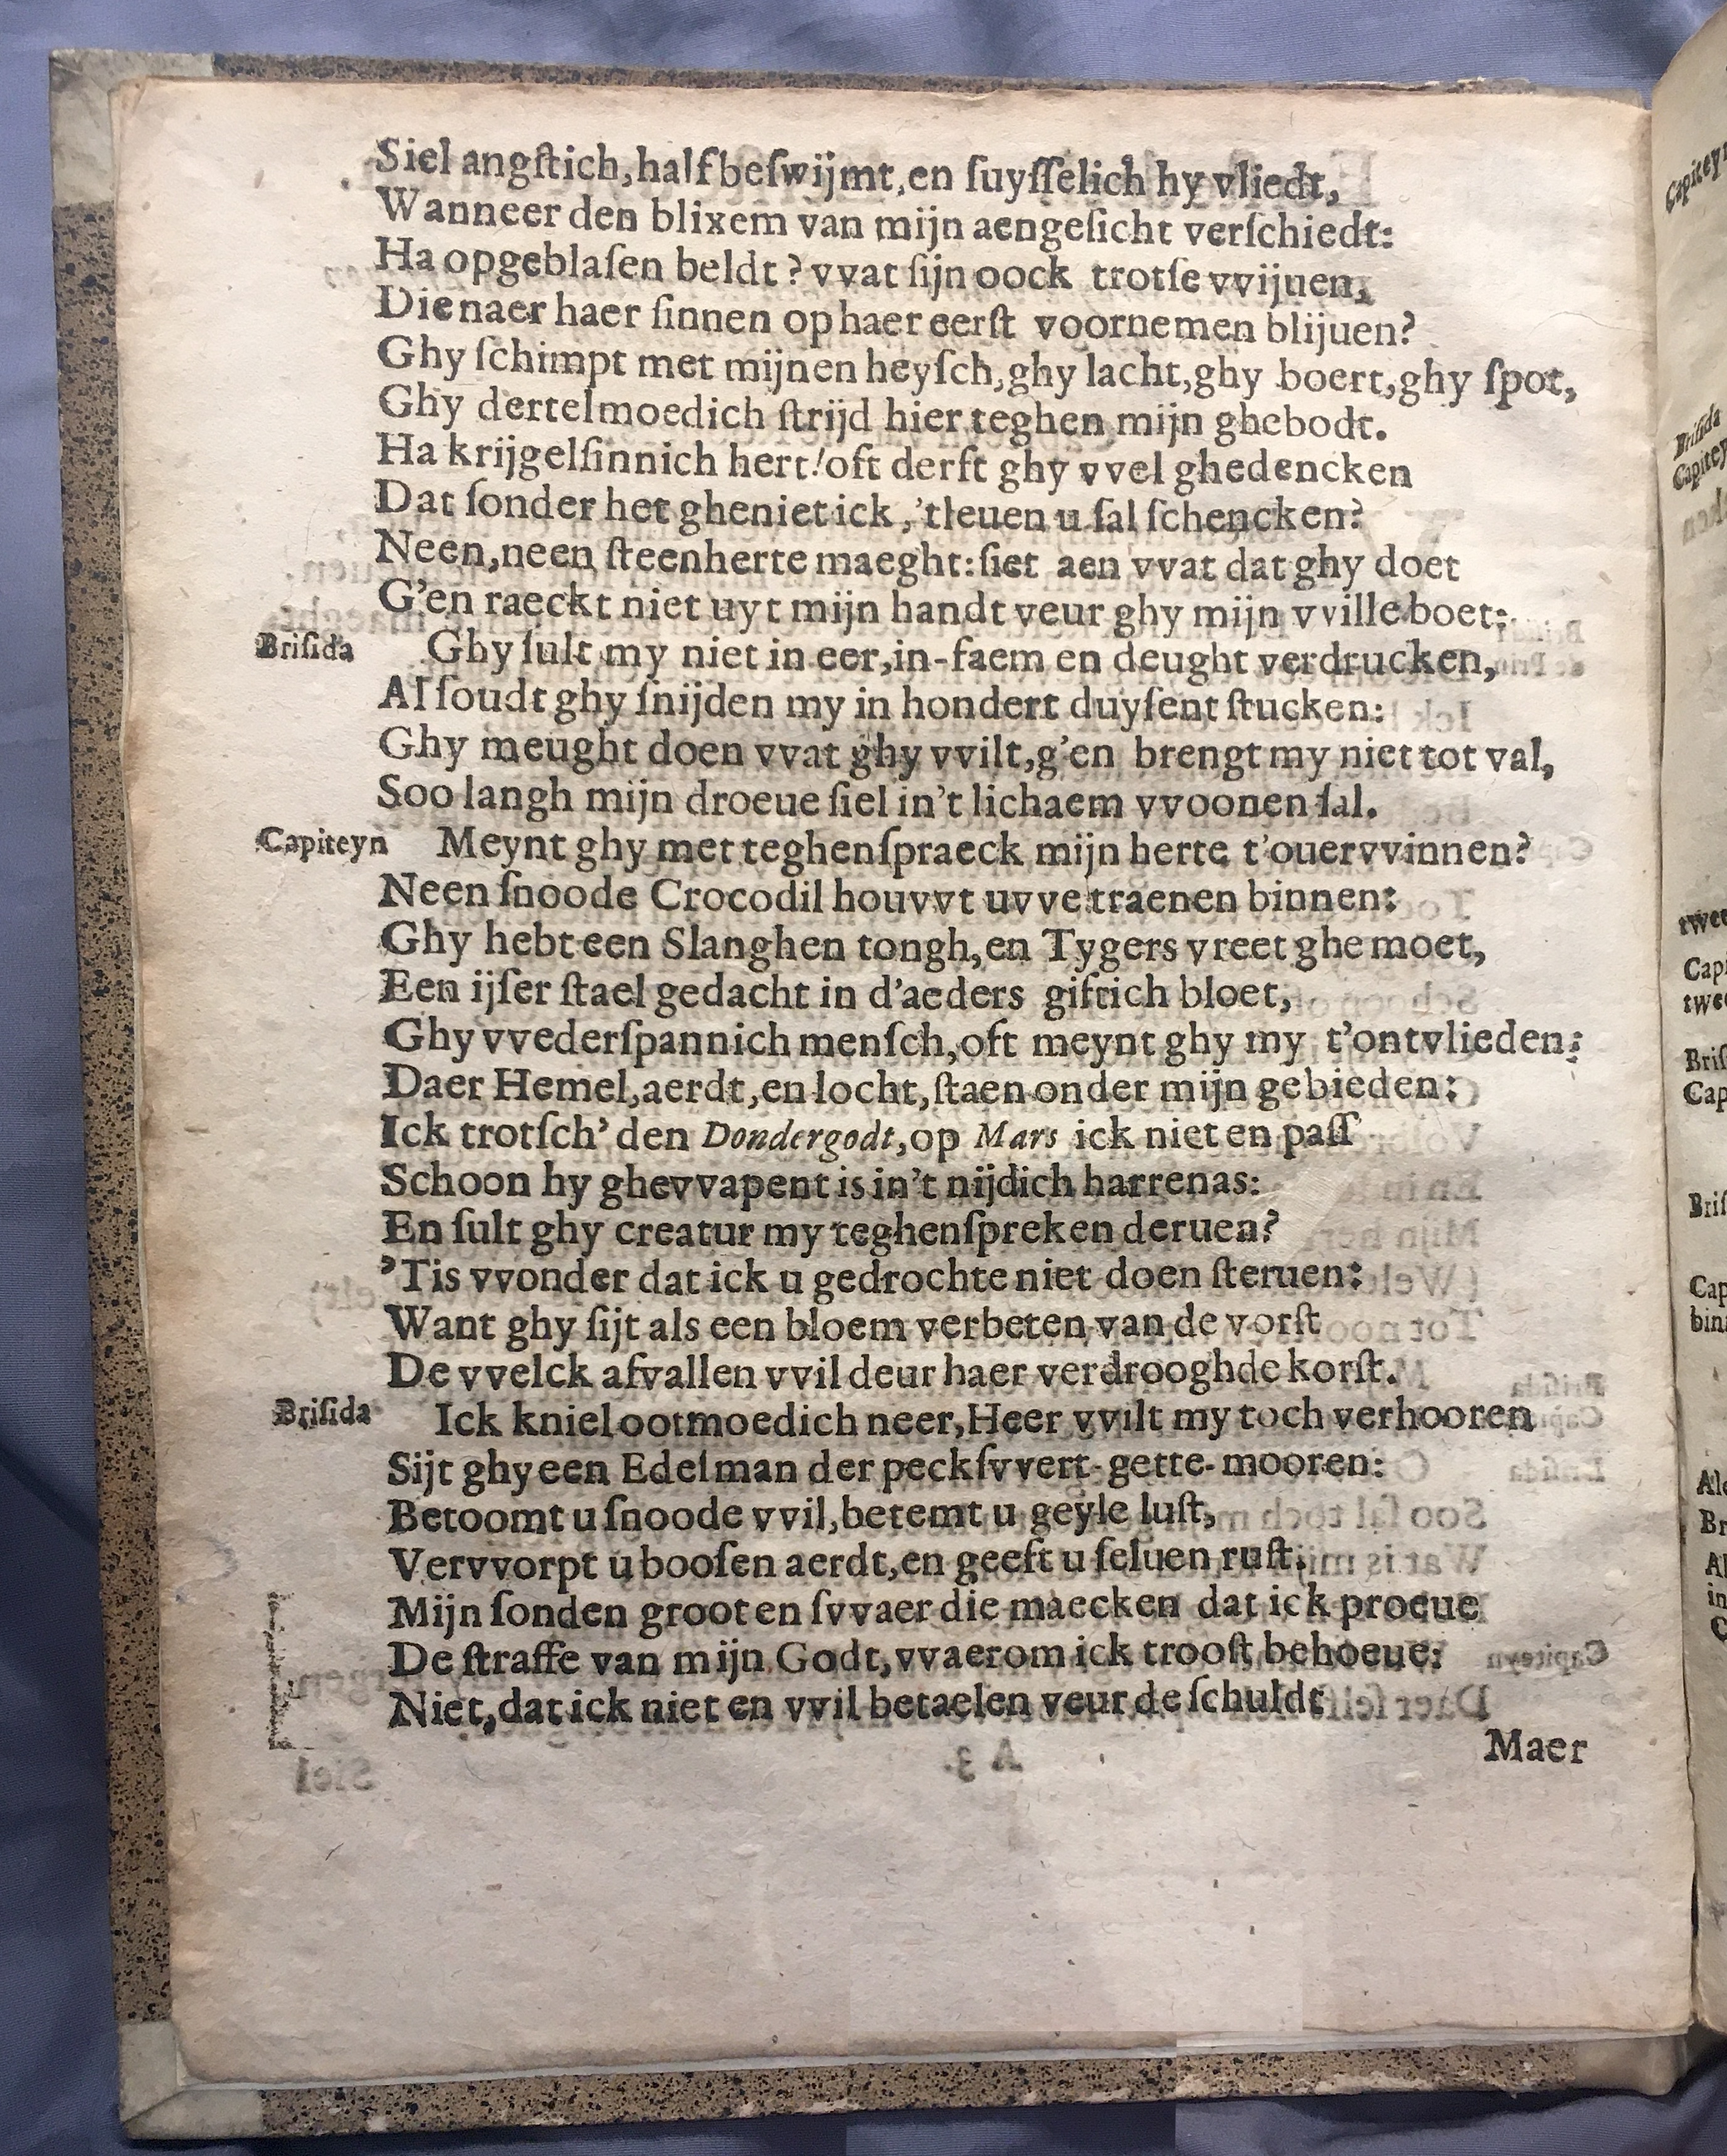 Siel angſtich, half beſwijmt, en ſuyſſelich hy vliedt,
Wanneer den blixem van mijn aengeſicht verſchiedt:
Ha opgeblaſen beldt? vvat ſijn oock trotſe vvijuen,
Die naer haer ſinnen op haer eerſt voornemen blijuen?
Ghy ſchimpt met mijnen heyſch, ghy lacht, ghy boert, ghy ſpot,
Ghy dertelmoedich ſtrijd hier teghen mijn ghebodt.
Ha krijgelſinnich hert! oft derft ghy vvel ghedencken
Dat ſonder het gheniet ick, 'tleuen u ſal ſchencken?
Neen, neen ſteenherte maeght: ſiet aen vvat dat ghy doet
G'en raeckt niet uyt mijn handt veur ghy mijn vville boet:
Briſida Ghy ſult my niet in eer, in-faem en deught verdrucken,
Al ſoudt ghy ſnijden my in hondert duyſent ſtucken:
Ghy meught doen vvat ghy vvilt, g'en brengt my niet tot val,
Soo langh mijn droeue ſiel in't lichaem vvoonen ſal.
Capiteyn Meynt ghy met teghenſpraeck mijn herte t'ouervvinnen?
Neen ſnoode Crocodil houvvt uvve traenen binnen:
Ghy hebt een Slanghen tongh, en Tygers vreet ghemoet,
Een ijſer ſtael gedacht in d'aeders giftich bloet,
Ghy vvederſpannich menſch, oft meynt ghy my t'ontvlieden:
Daer Hemel, aerdt, en locht, ſtaen onder mijn gebieden:
Ick trotſch' den Dondergodt, op Mars ick niet en paſſ
Schoon hy ghevvapent is in't nijdich harrenas:
En ſult ghy creatur my teghenſpreken deruen?
'Tis vvonder dat ick u gedrochte niet doen ſteruen:
Want ghy ſijt als een bloem verbeten van de vorſt
De vvelck afvallen vvil deur haer verdrooghde korſt.
Briſida Ick kniel ootmoedich neer, Heer vvilt my toch verhooren
Sijt ghy een Edelman der peckſvvert-gette-mooren:
Betoomt u ſnoode vvil, betemt u geyle luſt,
Vervvorpt u booſen aerdt, en geeft u ſeluen ruſt,
Mijn ſonden groot en ſvvaer die maecken dat ick proeue
De ſtraffe van mijn Godt, vvaerom ick trooſt behoeue:
Niet, dat ick niet en vvil betaelen veur de ſchuldt
Maer